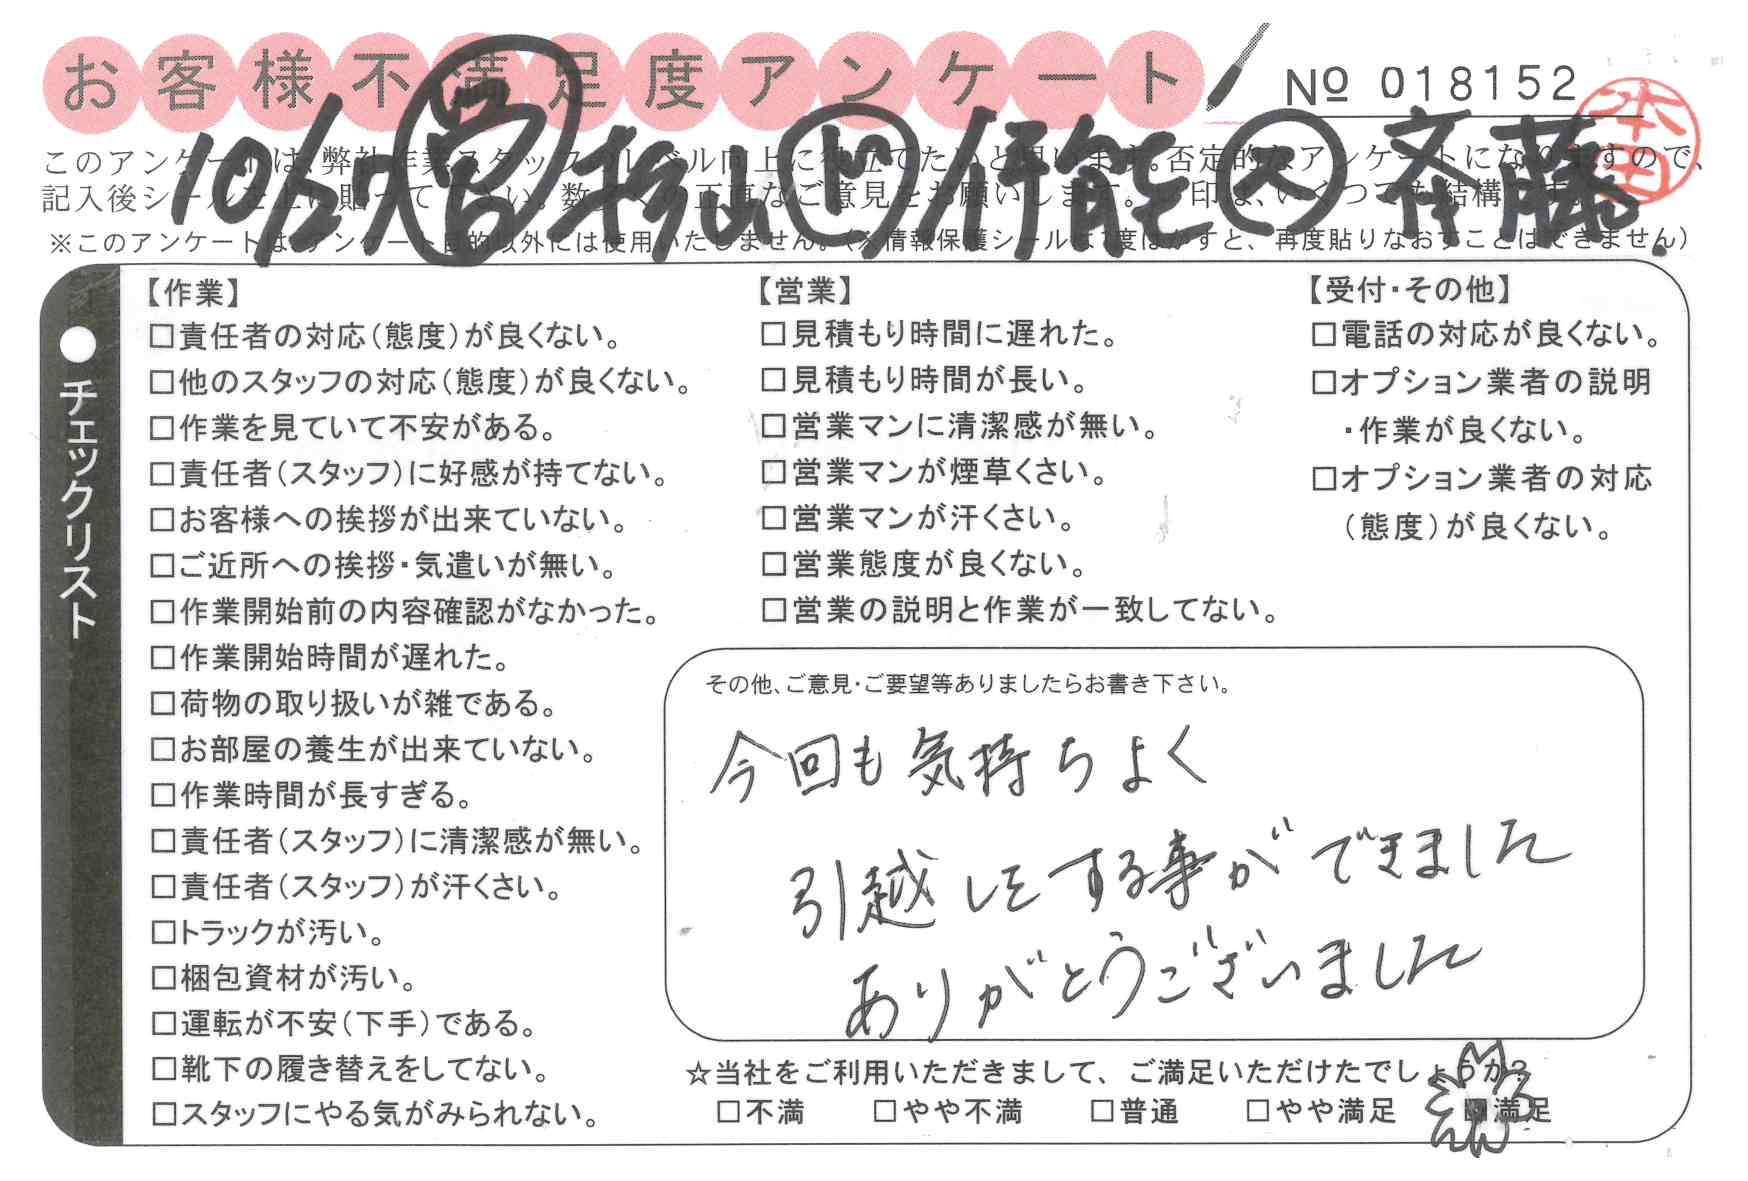 お客様不満足度アンケート
№ 018152
本田
10/27 営 杉山 ド 行能 ス 斉藤
このアンケートは、弊社作業スタッフのレベル向上に役立てたいと思います。否定的なアンケートになりますので、
記入後シールを上に貼って下さい。数多くの正直なご意見をお願いします。✓印は、いくつでも結構です。
※このアンケートは、アンケート目的以外には使用いたしません。(※情報保護シールは1度はがすと、再度貼りなおすことはできません)
●チェックリスト
【作業】
□責任者の対応(態度)が良くない。
□他のスタッフの対応(態度)が良くない。
□作業を見ていて不安がある。
□責任者(スタッフ)に好感が持てない。
□お客様への挨拶が出来ていない。
□ご近所への挨拶・気遣いが無い。
□作業開始前の内容確認がなかった。
□作業開始時間が遅れた。
□荷物の取り扱いが雑である。
□お部屋の養生が出来ていない。
□作業時間が長すぎる。
□責任者(スタッフ)に清潔感が無い。
□責任者(スタッフ)が汗くさい。
□トラックが汚い。
□梱包資材が汚い。
□運転が不安(下手)である。
□靴下の履き替えをしてない。
□スタッフにやる気がみられない。
【営業】
□見積もり時間に遅れた。
□見積もり時間が長い。
□営業マンに清潔感が無い。
□営業マンが煙草くさい。
□営業マンが汗くさい。
□営業態度が良くない。
□営業の説明と作業が一致してない。
【受付・その他】
□電話の対応が良くない。
□オプション業者の説明
・作業が良くない。
□オプション業者の対応
(態度)が良くない。
その他、ご意見・ご要望等ありましたらお書き下さい。
今回も気持ちよく
引越しをする事ができました
ありがとうございました
☆当社をご利用いただきまして、ご満足いただけたでしょうか?
□不満 □やや不満 □普通 □やや満足 ■満足